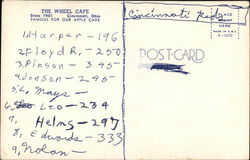 THE WHEEL CAFE
Since 1901 Cincinnati, Ohio
FAMOUS FOR OUR APPLE CAKE
1. Harper - 196
2. Floyd R, - 250
3. Pinson - 3.95
4. Jonson - 2.95
5. L, Mays -
6. Leo - 234
7, Helms - 297
8, Edwards - 333
9, Nolan -
Cincinnati Reds
PLACE
HERE
POSTCARD